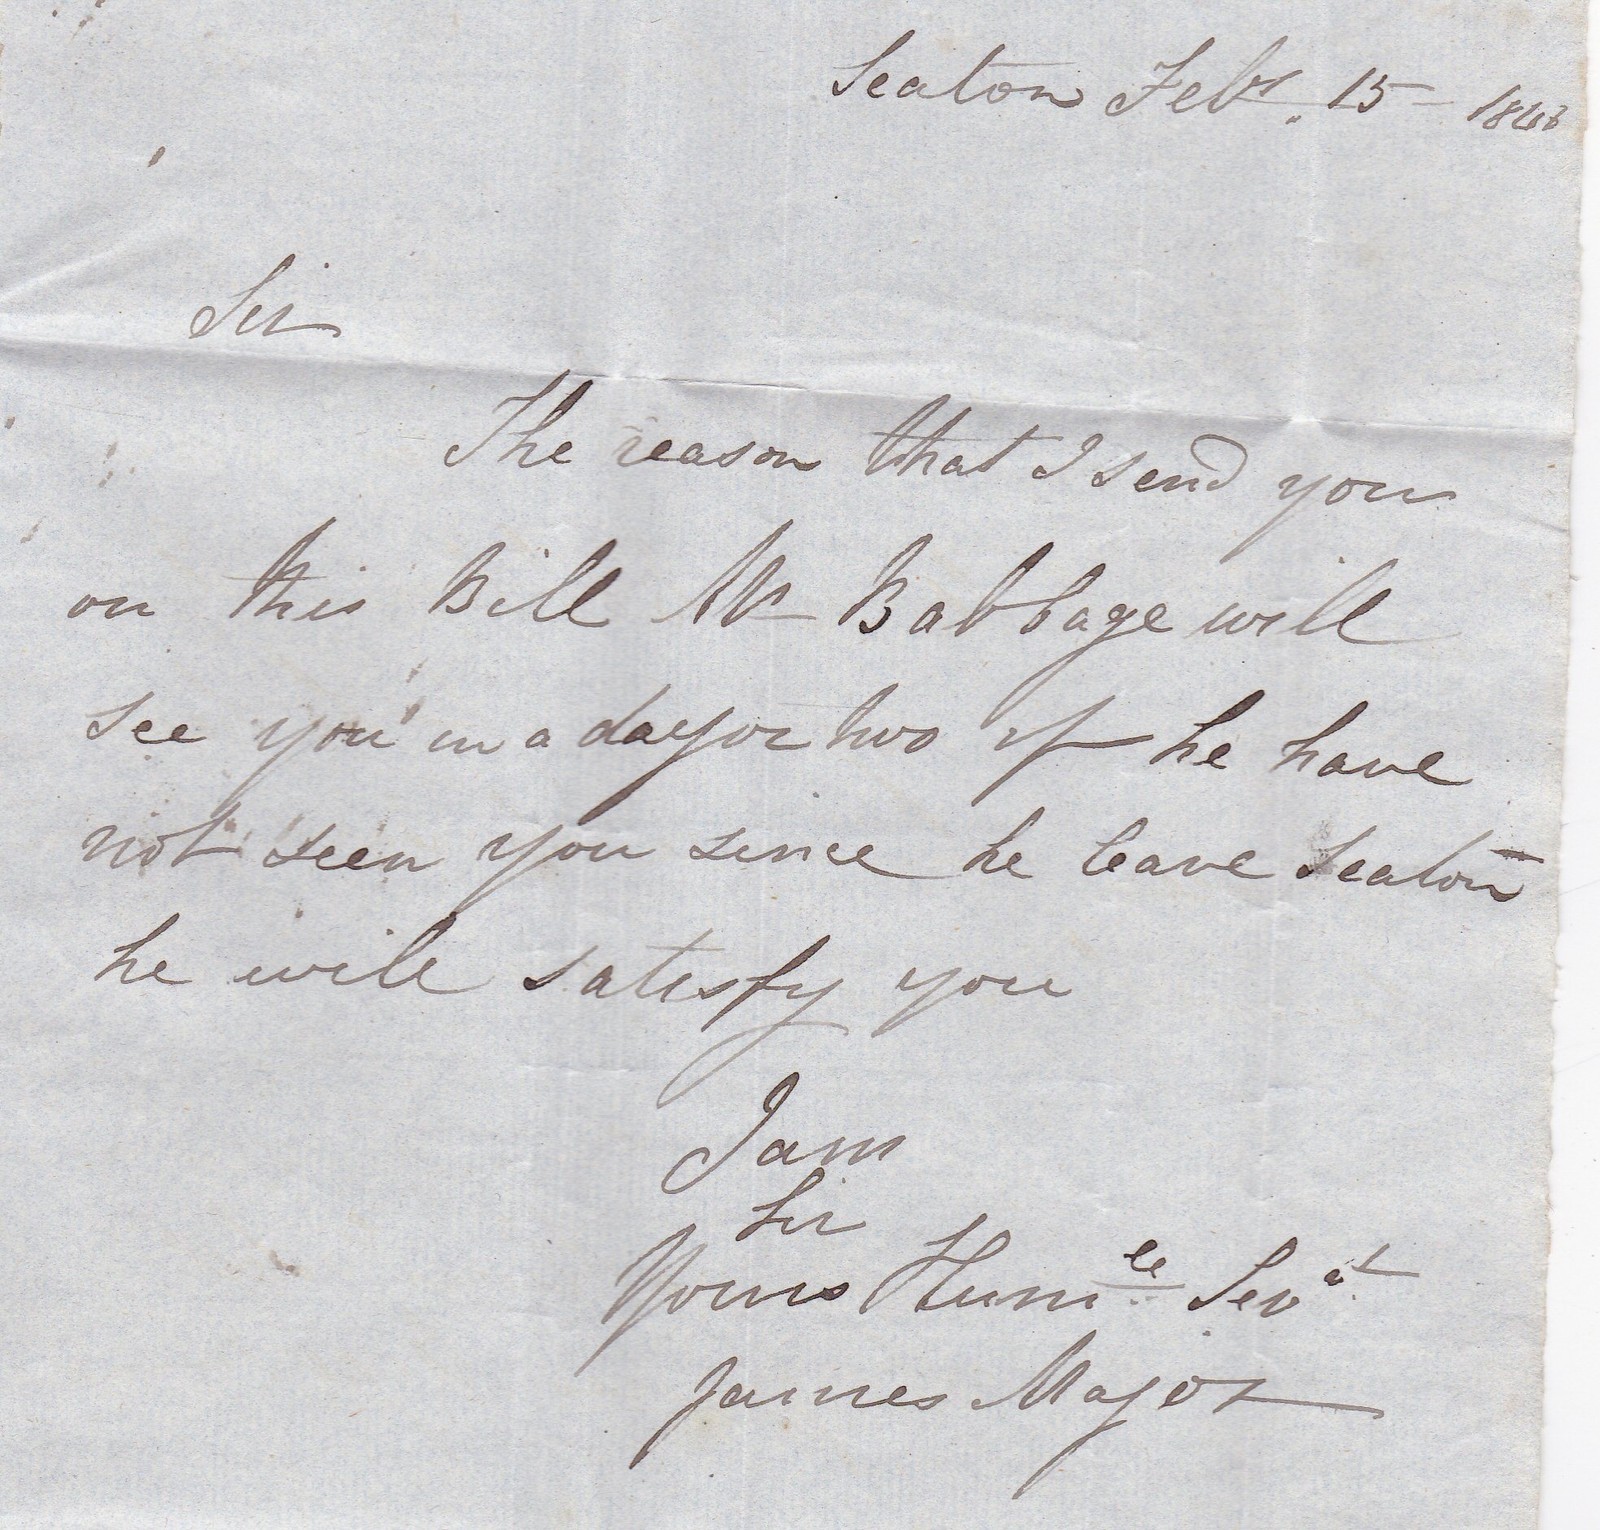 Seaton Feby. 15 - 1846
Sir
The reason that I send you
on this Bill Mr Babbage will
see you in a day or two if he have
not seen you since he leave Seaton
he will satisfy you
I am
Sir
Yours Humle Servt
James Major